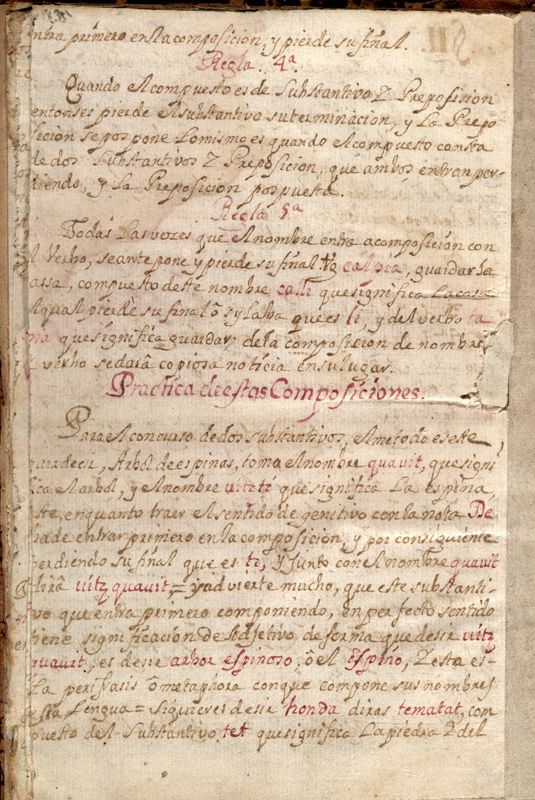 entra primero en la composicion, y pierde su final.
Regla. 4ª.
Quando el compuesto es de Substantivo Z Preposision
entonses pierde el substantivo su terminacion, y La Prepo
sicion se pospone Lo mismo es quando el compuesto consta
de dos Substantivos Z Preposicion, que ambos entran per-
diendo, y La Preposicion pospuesta.
Regla 5ª
Todas Las vezes que el nombre entra a composición con
el Verbo, se antepone y pierde su final. Vg calpia, guardar la
cassa, compuesto deste nombre calli que significa La casa
el qual pierde su final ò sylaba que es li, y del verbo
que significa guardar; de la composicion de nombre
y verbo se darâ copiosa noticia en su lugar.
Practica de estas Composiciones.
Para el concurso de dos substantivos, el metodo es este
para decir, Arbol de espinas, toma el nombre quavit, que signi
fica el arbol, y el nombre uitzti que significa La espina
este, en quanto traer el sentido de genitivo con la nota De
ha de entrar primero en la composicion, y por consiguiente
perdiendo su final que es ti, y junto con el nombre quavit
dirâ uitzquavit = y advierte mucho, que este substanti-
vo que entra primero componiendo, en perfecto sentido
tiene significacion de Adjetivo de forma que desir uitz
quavit, es desir arbor espinoso, ô el Espino, Z esta es
La perifrasis ô metaphora con que compone sus nombres
esta Lengua = si quieres desir honda diras tematat, com
puesto del Substantivo tet que significa La piedra Z del